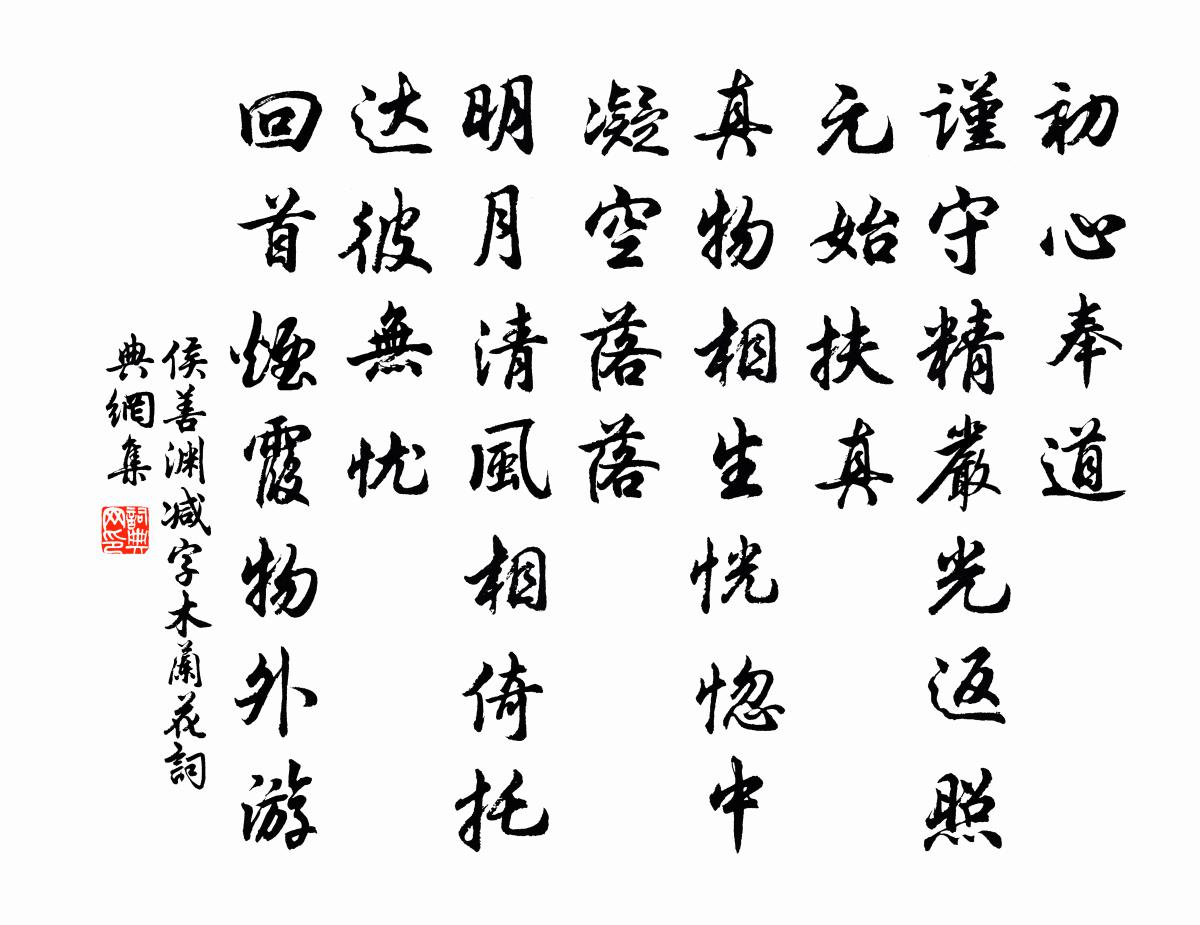 初心奉道
谨守精嚴光返照
元始扶真
真物相生恍惚中
凝空落落
明月清風相倚托
达彼無忧
回首煙霞物外游
侯善渊减字木蘭花詞
典網集
詞典
网印